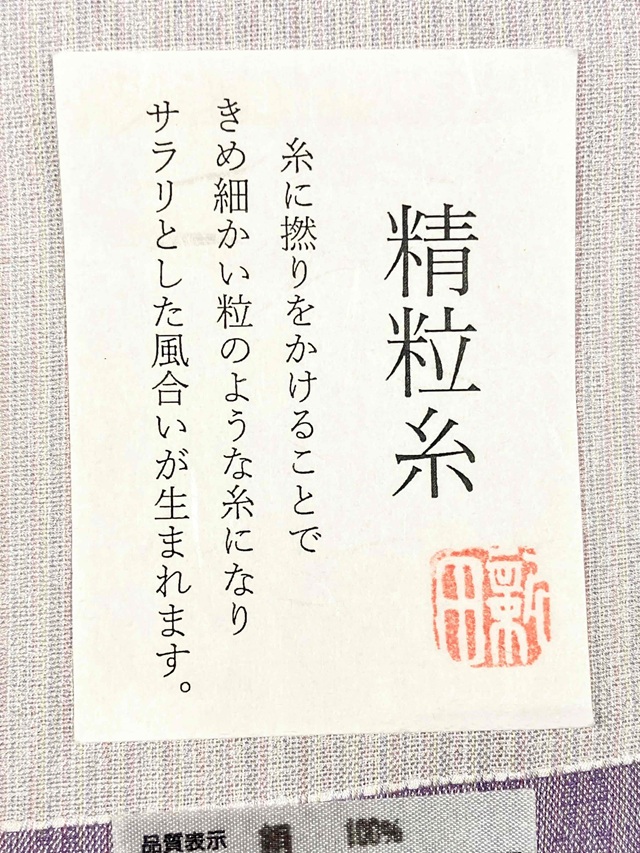 精粒糸
糸に撚りをかけることで
きめ細かい粒のような糸になり
サラリとした風合いが生まれます。
新田
品質表示 絹 100%